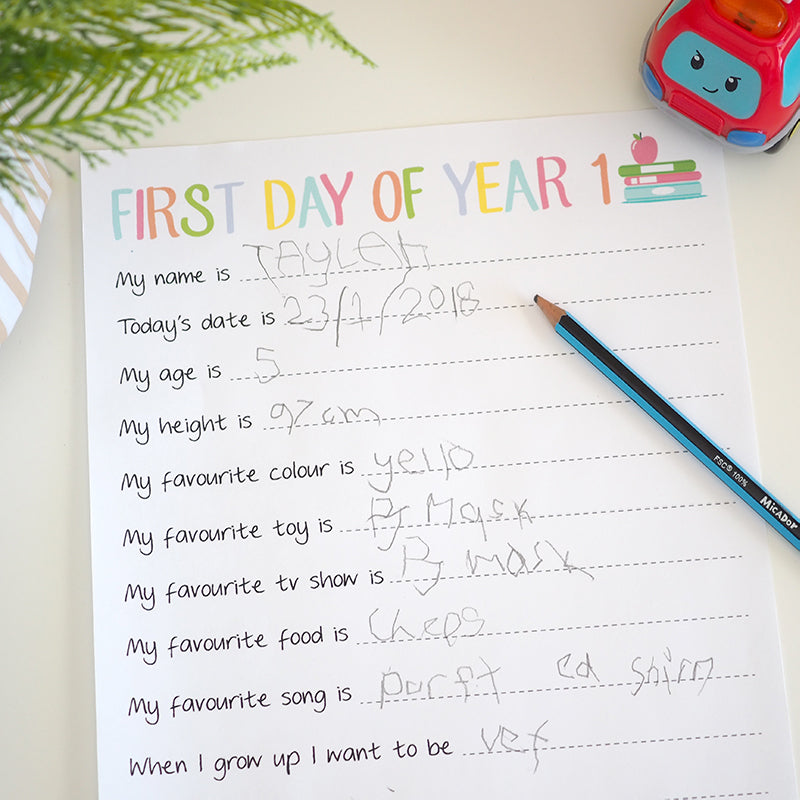 FIRST DAY OF YEAR 1
My name is TAYLAH
Today's date is 23/1/2018
My age is 5
My height is 97cm
My favourite colour is yello
My favourite toy is Pj Mask
My favourite tv show is Pj mask
My favourite food is Cheps
My favourite song is purft ed shirn
When I grow up I want to be vet
FSC® 100%
MICADOR